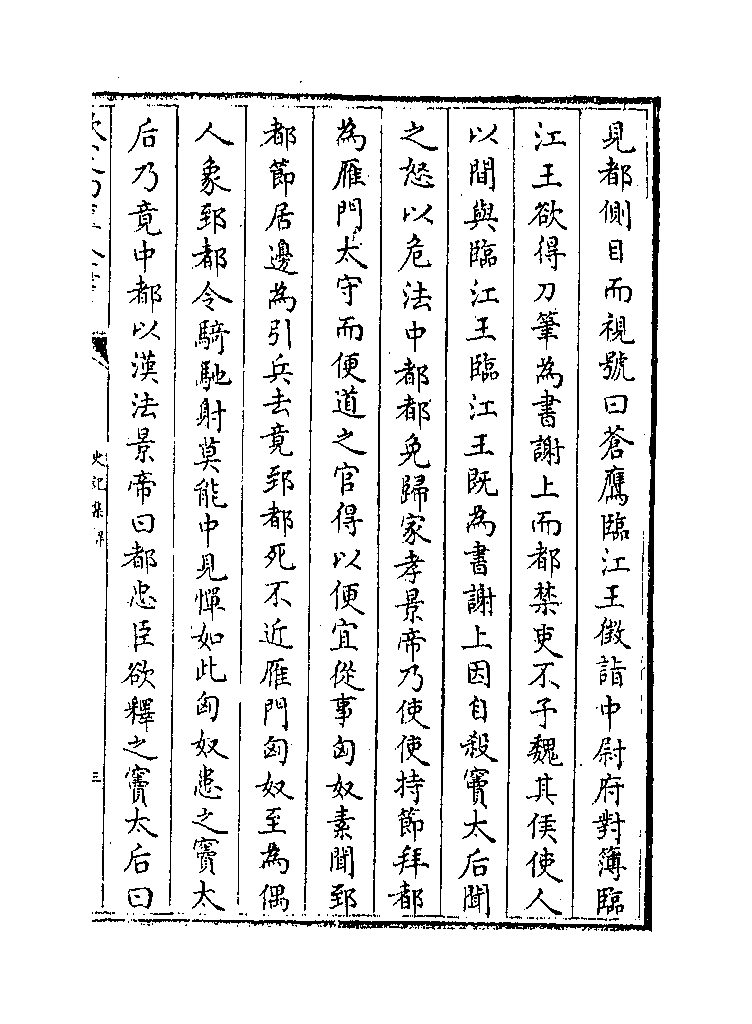 見都側目而視號曰蒼鷹臨江王徵詣中尉府對簿臨
江王欲得刀筆為書謝上而都禁吏不予魏其侯使人
以間與臨江王臨江王既為書謝上因自殺竇太后聞
之怒以危法中都都免歸家孝景帝乃使使持節拜都
為雁門太守而便道之官得以便宜從事匈奴素聞郅
都節居邊為引兵去竟郅都死不近雁門匈奴至為偶
人象郅都令騎馳射莫能中見憚如此匈奴患之竇太
后乃竟中都以漢法景帝曰都忠臣欲釋之竇太后曰
史記集解
三